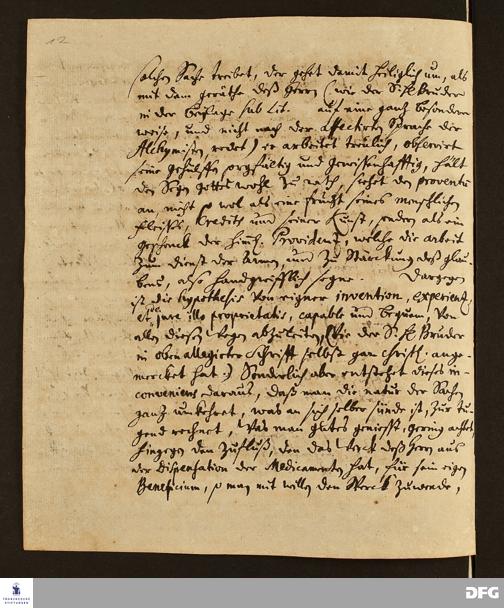 12
solchen Sache treibet, der gehet damit heiliglich um, als
mit dem geräthe deß Herrn (wie der S. H. Bruder
in der beylage sub Lit. auf eine gantz besondere
weise, und nicht nach der affectirten Sprache der
Alchymisten, redet) er arbeitet treulich, observiret
seine gehülffen sorgfältig und gewissenhafftig, hält
den Segen Gottes wohl zu rath, siehet den proventum
an, nicht so wol als eine frucht seines menschlichen
fleisses, Credits und seiner Kunst, sondern als ein
geschenck der himl. Providentz, welche die arbeit
zum dienst der Armen, und zu Stärckung deß glau-
bens, also handgreifflich segne. Dargegen
ist die hypothesis von eigner invention, experientz,
et jure illo proprietatis, capable und bequem, von
allen diesen wegen abzuleiten, (wie der S. H. Bruder
in oben allegirter Schrifft selbst gar christl. ange-
mercket hat.) Sonderlich aber entstehet dieses in-
conveniens daraus, daß man die natur der Sachen
gantz umkehret, was an sich selber sünde ist, zur tu-
gend rechnet, was man gutes geniesst, gering achtet
hingegen den Zufluß, den das Werck deß Herrn aus
der dispensation der Medicamenten hat, für sein eigen
Beneficium, so man mit willen dem Werck zuwende,
FRANCKESCHE
STIFTUNGEN
DFG